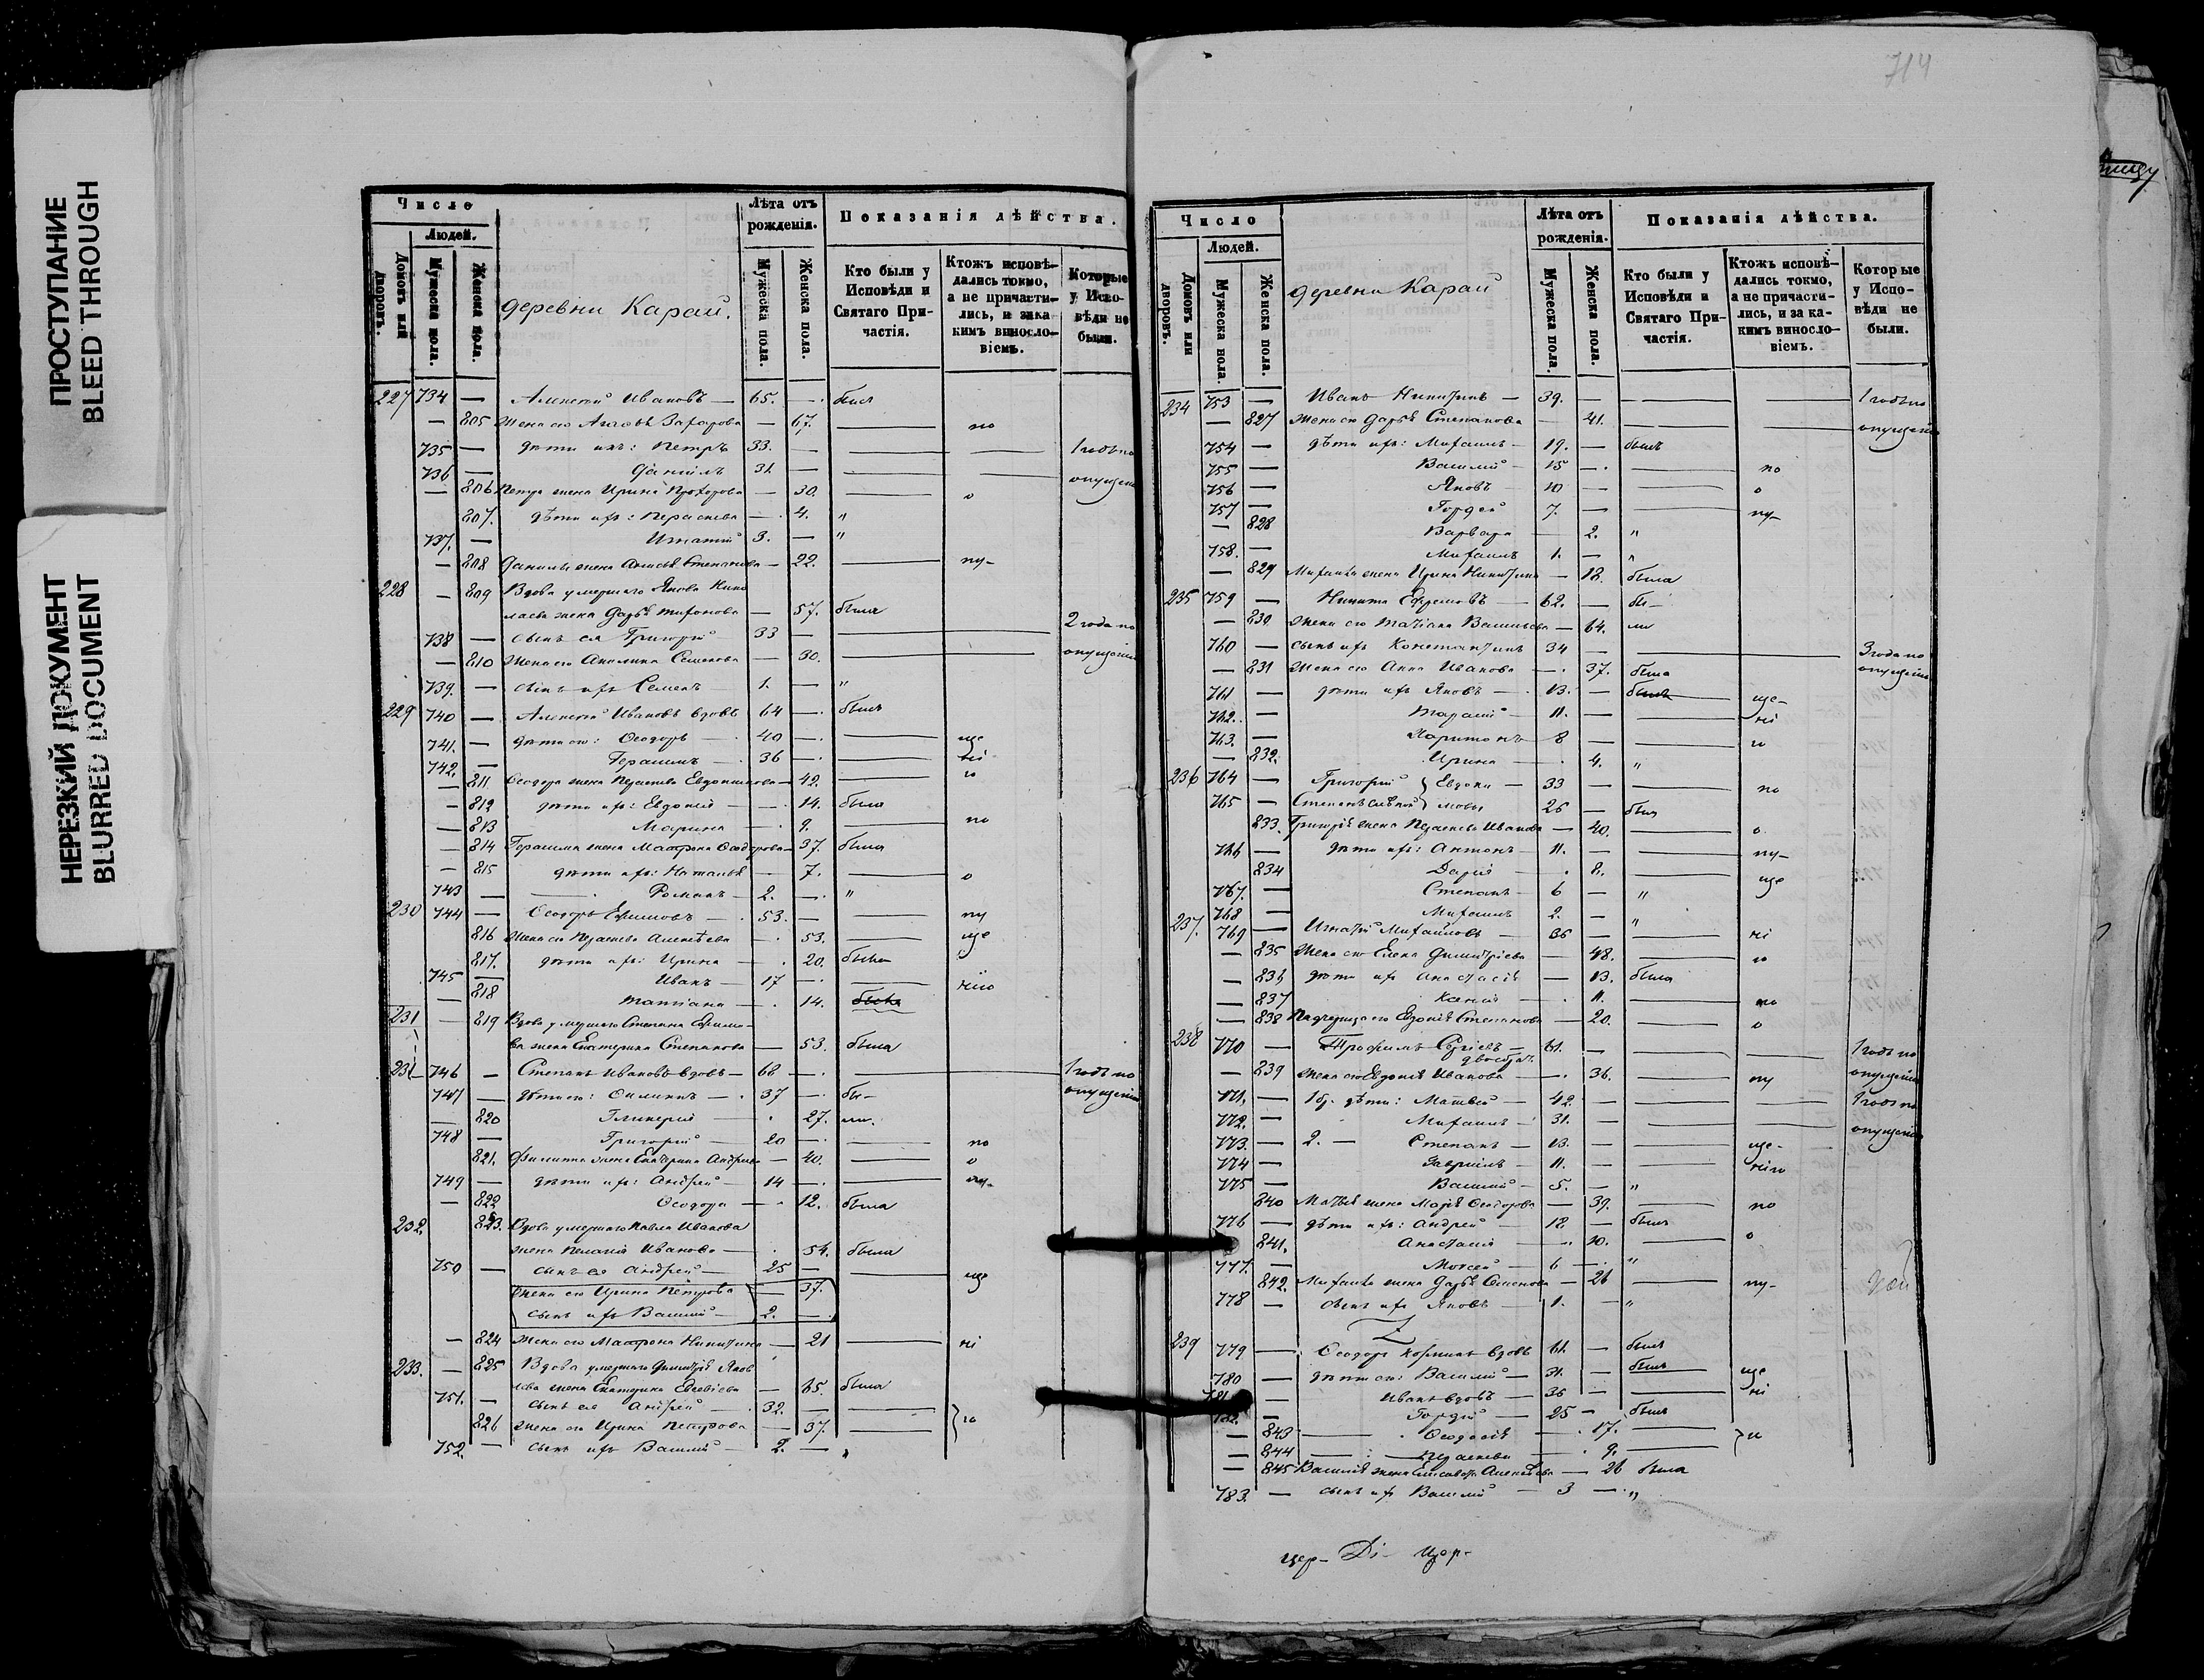 ПРОСТУПАНИЕ
BLEED THROUGH
НЕРЕЗКИЙ ДОКУМЕНТ
BLURRED DOCUMENT
Число
Людей.
Домовъ или дворовъ.
Мужеска пола.
Женска пола.
деревни Карай.
Лѣта отъ рожденія.
Мужеска пола.
Женска пола.
Показанія дѣйства.
Кто были у Исповѣди и Святаго Причастія.
Ктожъ исповѣдались токмо, а не причастились, и за каким винословіемъ.
Которые у Исповѣди не были.
227 734 — Алексей Ивановъ — 65. — былъ
— 805 Жена его Захарова — 67. — по
735 — дѣти ихъ: Петръ 33. — 1 годъ по
736 — Данiилъ 31 — опущенiю
— 806 Петра жена Ирина Прохорова — 30. — о
807. дѣти ихъ: Параскева — 4. "
737. — Игнатий 3. — "
— 808 Данила жена Анисья Степанова — 22. — пу-
228 — 809 Вдова умершаго Якова Нико
лаева жена Дарья — 57. была
738 — сынъ ея Григорий 33 — 2 года по
— 810 Жена его Акилина Семенова — 30. опущенiю
739. — сынъ ихъ Семенъ 1. — "
229 740 — Алексей Ивановъ вдовъ 64 — былъ
741. — дѣти его: Феодоръ — 40 — — ще
742. — Герасимъ — 36 — — нi
— 811 Феодора жена Параскева Евдокимова — 42. — ю
— 812 дѣти ихъ: Евдокия — 14. была
— 813 Марина — 9. — по
— 814 Герасима жена Матрона Феодорова — 37. была
— 815 дѣти ихъ: Наталья — 7. — о
743 — Романъ — 2. — "
230 744 — Феодоръ Ефимовъ — 53. — — пу
816 Жена его Параскева Алексѣева — 53. — ще
817. дѣти ихъ: Ирина — 20. была
745 — Иванъ — 17 — — нiю
— 818 Татiана — 14. была
231 — 819 Вдова умершаго Степана Ефимо-
ва жена Екатерина Степанова — 53. была
231 746 — Степанъ Ивановъ вдовъ — 68 — 1 годъ по
747 — дѣти его: Филипъ — 37 — бы- опущенiю
— 820 Гликерия — 27. ли.
748 — Григорий — 20 — — по
821. Филипа жена Екатерина Андреева — 40. — о
749 — дѣти ихъ: Андрей — 14 — — пу-
— 822 Феодора — 12. была
232. 823. Вдова умершаго Павла Иванова
жена Пелагия Иванова — 54. была
750 — сынъ ея Андрей — 25 — — ще
Жена его Ирина Петрова — 37.
Сынъ ихъ Василий — 2. —
— 824 Жена его Матрона Никитина — 21 — нi
233. — 825 Вдова умершаго Димитрiя Яков
лева жена Екатерина Евсевiева — 65. была
751. — сынъ ея Андрей — 32. — — ю
826 Жена его Ирина Петрова — 37. —
752. — сынъ ихъ Василий — 2. — "
714
Число
Людей.
Домовъ или дворовъ.
Мужеска пола.
Женска пола.
деревни Карай
Лѣта отъ рожденія.
Мужеска пола.
Женска пола.
Показанія дѣйства.
Кто были у Исповѣди и Святаго Причастія.
Ктожъ исповѣдались токмо, а не причастились, и за каким винословіемъ.
Которые у Исповѣди не были.
234 753 — Иванъ Никитинъ — 39. — 1 годъ по
— 827 Жена его Дарья Степанова — 41. опущенiю
754 — дѣти ихъ: Михаилъ — 19. — былъ
755 — Василий — 15 — — по
756 — Яковъ 10 — — о
757 — Гордей 7. — — пу-
— 828 Варвара — 2. "
758. — Михаилъ 1. — "
— 829 Михаила жена Ирина Никитина — 18. была
235 759 — Никита Ефремовъ — 62. — бы-
— 830 Жена его Татiана Васильева — 64. ли
760 — сынъ ихъ Константинъ 34 — 3 года по
— 831 Жена его Анна Иванова — 37. была опущенiю
761 — дѣти ихъ Яковъ — 13. — былъ ще-
762. — Тарасий — 11. — — нi
763. — Харитонъ 8 — — ю
— 832. Ирина — 4. "
236 764 — Григорий } Евдоки- 33 — — по
765 — Степанъ мовы 26 — был
833. Григорiя жена Параскева Иванова — 40. — о
766 — дѣти ихъ: Антонъ — 11. — — пу-
834 Дария — 8. — ще
767. — Степанъ — 6 — "
768 — Михаилъ 2. — "
237. 769 — Игнатий Михайловъ — 36 — — нi
— 835 Жена его Елена Димитрiева — 48. — ю
— 836 дѣти ихъ Анастасiя — 13. была
— 837 Ксения — 11. — по
— 838 Падчерица его Евдокiя Степанова — 20. — о
238 770 — Трофимъ Сергiевъ — 61. — — 1 годъ по
двоебрач.
— 839 Жена его Евдокiя Иванова — 36. — пу опущенiю
771. — 1 бр. дѣти: Матвей — 42. — — 1 годъ по
772. — Михаилъ — 31. — — опущенiю
773. — 2. — Степанъ — 13. — — ще-
774 — Гаврiилъ — 11. — — нiю
775 — Василий — 5. — "
840 Матвея жена Марiя Феодорова — 39. — по
776 — дѣти ихъ: Андрей — 12 — былъ
841. Анастасiя — 10. — о
777. — Моисей — 6 — "
842. Михаила жена Дарья Семенова — 26 — пу-
778 — сынъ ихъ Яковъ — 1. — "
239 779 — Феодоръ вдовъ 61. — былъ
780 — дѣти его: Василий — 31. — былъ ще
781 — Иванъ вдовъ — 36 — — нi
782. — Гордiй — 25 — былъ
— 843 — Феодосiя — 17. — ю
— 844 — Параскева — 9. —
— 845 Василiя жена Елисавета Алексѣева — 26 была
783. — сынъ ихъ Василий — 3 — "
цер- Дi- Цер-